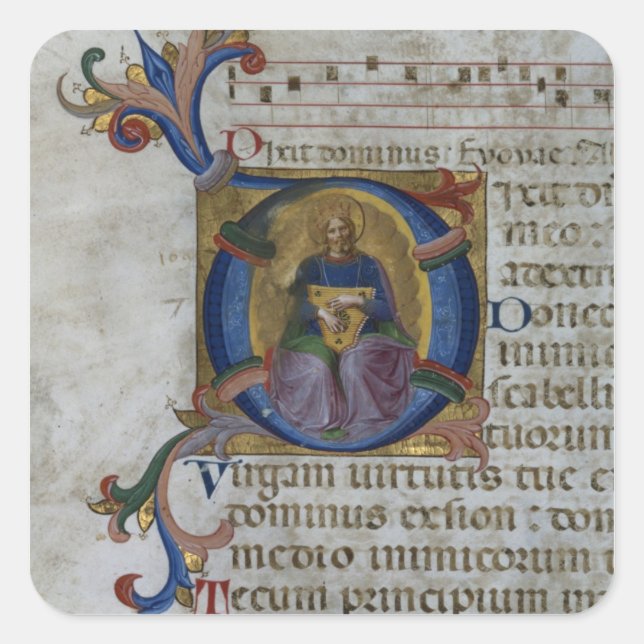 Dixit dominus: Evovae. All
Dixit dn
meo:
adextri
Donec
inimic
scabellu
tuorum
Virgam virtutis tue e
dominus exsion: dom
medio inimicorum t
Tecum principium in